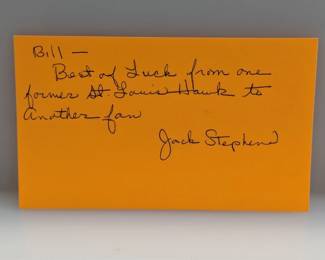 Bill —
Best of Luck from one
former St. Louis Hawk to
another fan
Jack Stephens